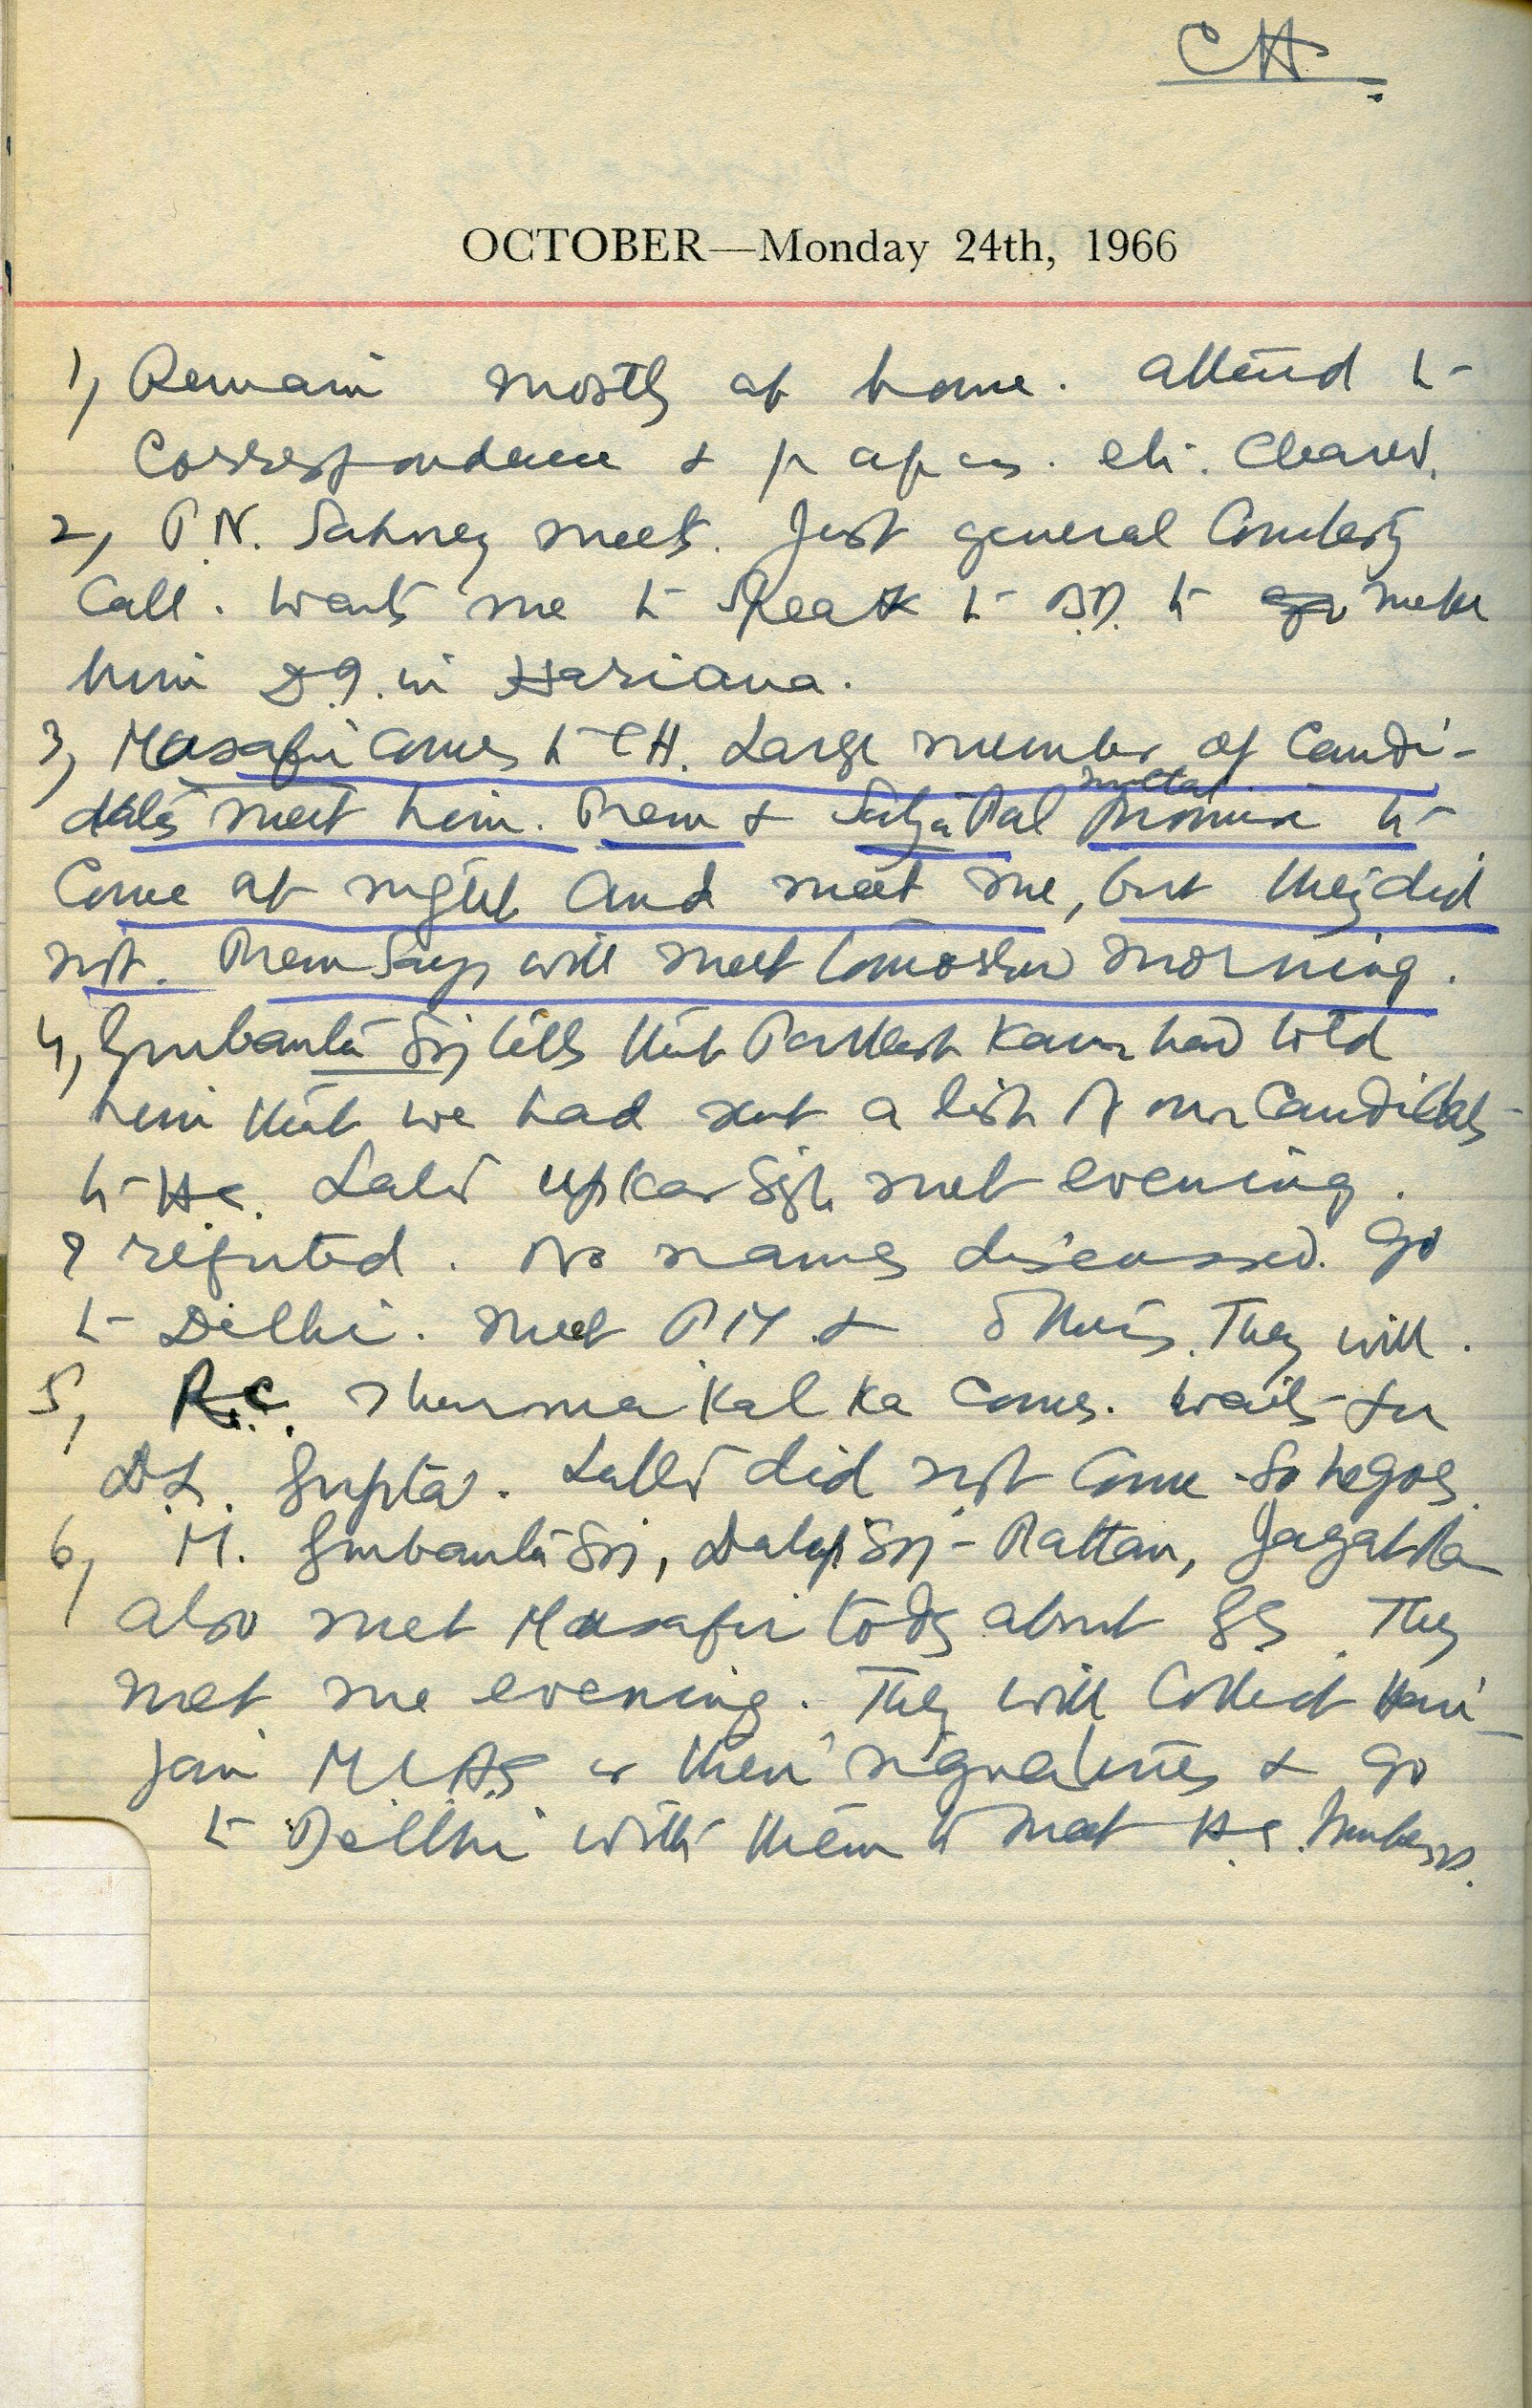 CH.
OCTOBER—Monday 24th, 1966
1, Remain mostly at home. Attend to
Correspondence & papers. etc. Cleared.
2, P.N. Sahney meets. Just general Courtesy
Call. Wants me to Speak to B.D. to make
him D.G. in Hariana.
3, Musafir comes to CH. Large number of Candi-
dates meet him. Prem & Satya Pal Mittal Promise to
Come at night and meet me, but they did
not. Prem Says will meet tomorrow morning.
4, Gurbanta Sgh tells that Parkash Kaur had told
him that we had sent a list of our Candidates
to H.C. Later Upkar Sgh met evening.
I refuted. No names discussed. Go
to Delhi. Meet PM & Others. They will.
5, R.C. Sharma Kalka comes. Waits for
D.L. Gupta. Latter did not Come. So he goes.
6, M. Gurbanta Sgh, Dalip Sgh - Rattan, Jagat Ram
also met Musafir today about They
met me evening. They will Collect Hari-
jan MLAs or their signatures & go
to Delhi with them to meet H.C. Members.